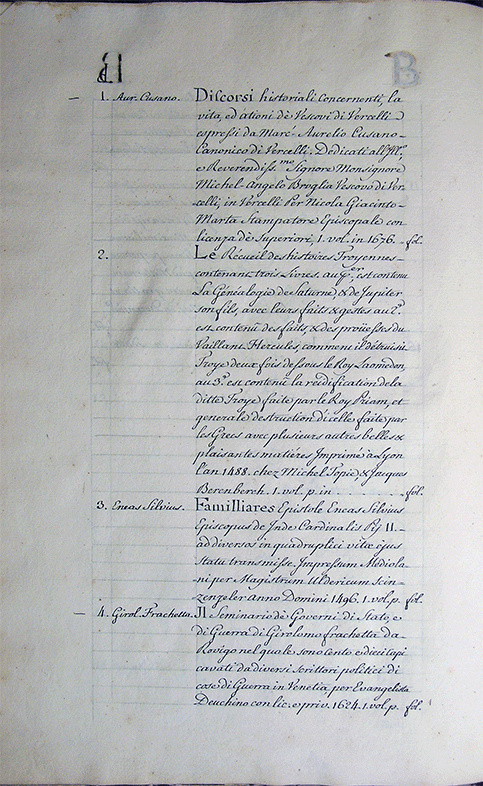 B
1. Aur. Cusano. Discorsi historiali concernenti, la
vita, ed ationi de Vescovi di Vercelli
espressi da Marc Aurelio Cusano
Canonico di Vercelli. Dedicati all Ill.
e Reverendiss.mo Signore Monsignore
Michel Angelo Broglia Vescovo di Ver-
celli, in Vercelli Per Nicola Giacinto
Marta Stampatore Episcopale con
licenza de Superiori, 1. vol. in 1676. fol.
2. Le Recueil des histoires Troyennes
contenant trois Livres. au p.er est contenu
La Généalogie de Saturne, & de Jupiter
son fils, avec leurs faits & gestes au 2.e
est contenü des faits, & des proüesses du
Vaillant Hercules, comment il détruisit
Troye deux fois dessous le Roy Laomedon,
au 3.e est contenü la reidification de la
ditte Troye faite par le Roy Priam, et
generale destruction dicelle faite par
les Grecs avec plusieurs autres belles &
plaisantes matiéres Imprimé à Lyon
l'an 1488. chez Michel Topie, & Jaques
Herenberch. 1. vol. p. in . . . . fol.
3. Eneas Silvius. Familliares Epistole Eneas Silvius
Episcopus de Inde Cardinalis Pij II.
ad diversos in quadruplici vitæ ejus
Statu transmisse. Impressum Mediola-
ni per Magistrum Uldericum Scin-
zenzeler anno Domini 1496. 1. vol. p. fol.
4. Girol. Frachetta. Il Seminario de Governi di Stato, e
di Guerra di Girolomo frachetta da
Rovigo nel quale sono cento e dieci capi
cavati da diversi scrittori politici di
cose di Guerra in Venetia per Evangelista
Deuchino con lic. e priv. 1624. 1. vol. p. fol.